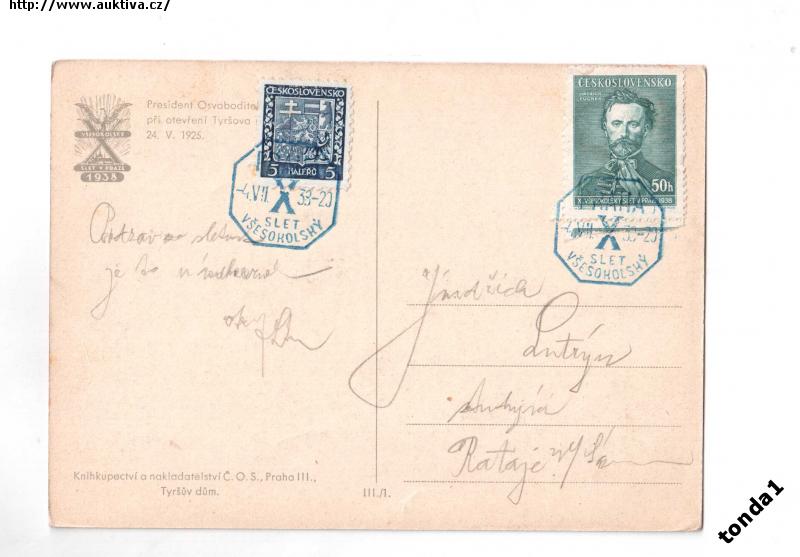 http://www.auktiva.cz/
President Osvoboditel
při otevření Tyršova
24. V. 1925.
VŠESOKOLSKÝ
SLET V PRAZE
1938
ČESKOSLOVENSKO
5 HALÉŘŮ 5
-4.VII. 38-20
X
SLET
VŠESOKOLSKÝ
ČESKOSLOVENSKO
JINDŘICH
FÜGNER
50h
X. VŠESOKOLSKÝ SLET V PRAZE 1938
PRAHA
-4.VII. 38-20
X
SLET
VŠESOKOLSKÝ
Pozdrav ze sletu
je to
Jindřich
Rataje n/S
Knihkupectví a nakladatelství Č. O. S., Praha III.,
Tyršův dům.
III./1.
tonda1